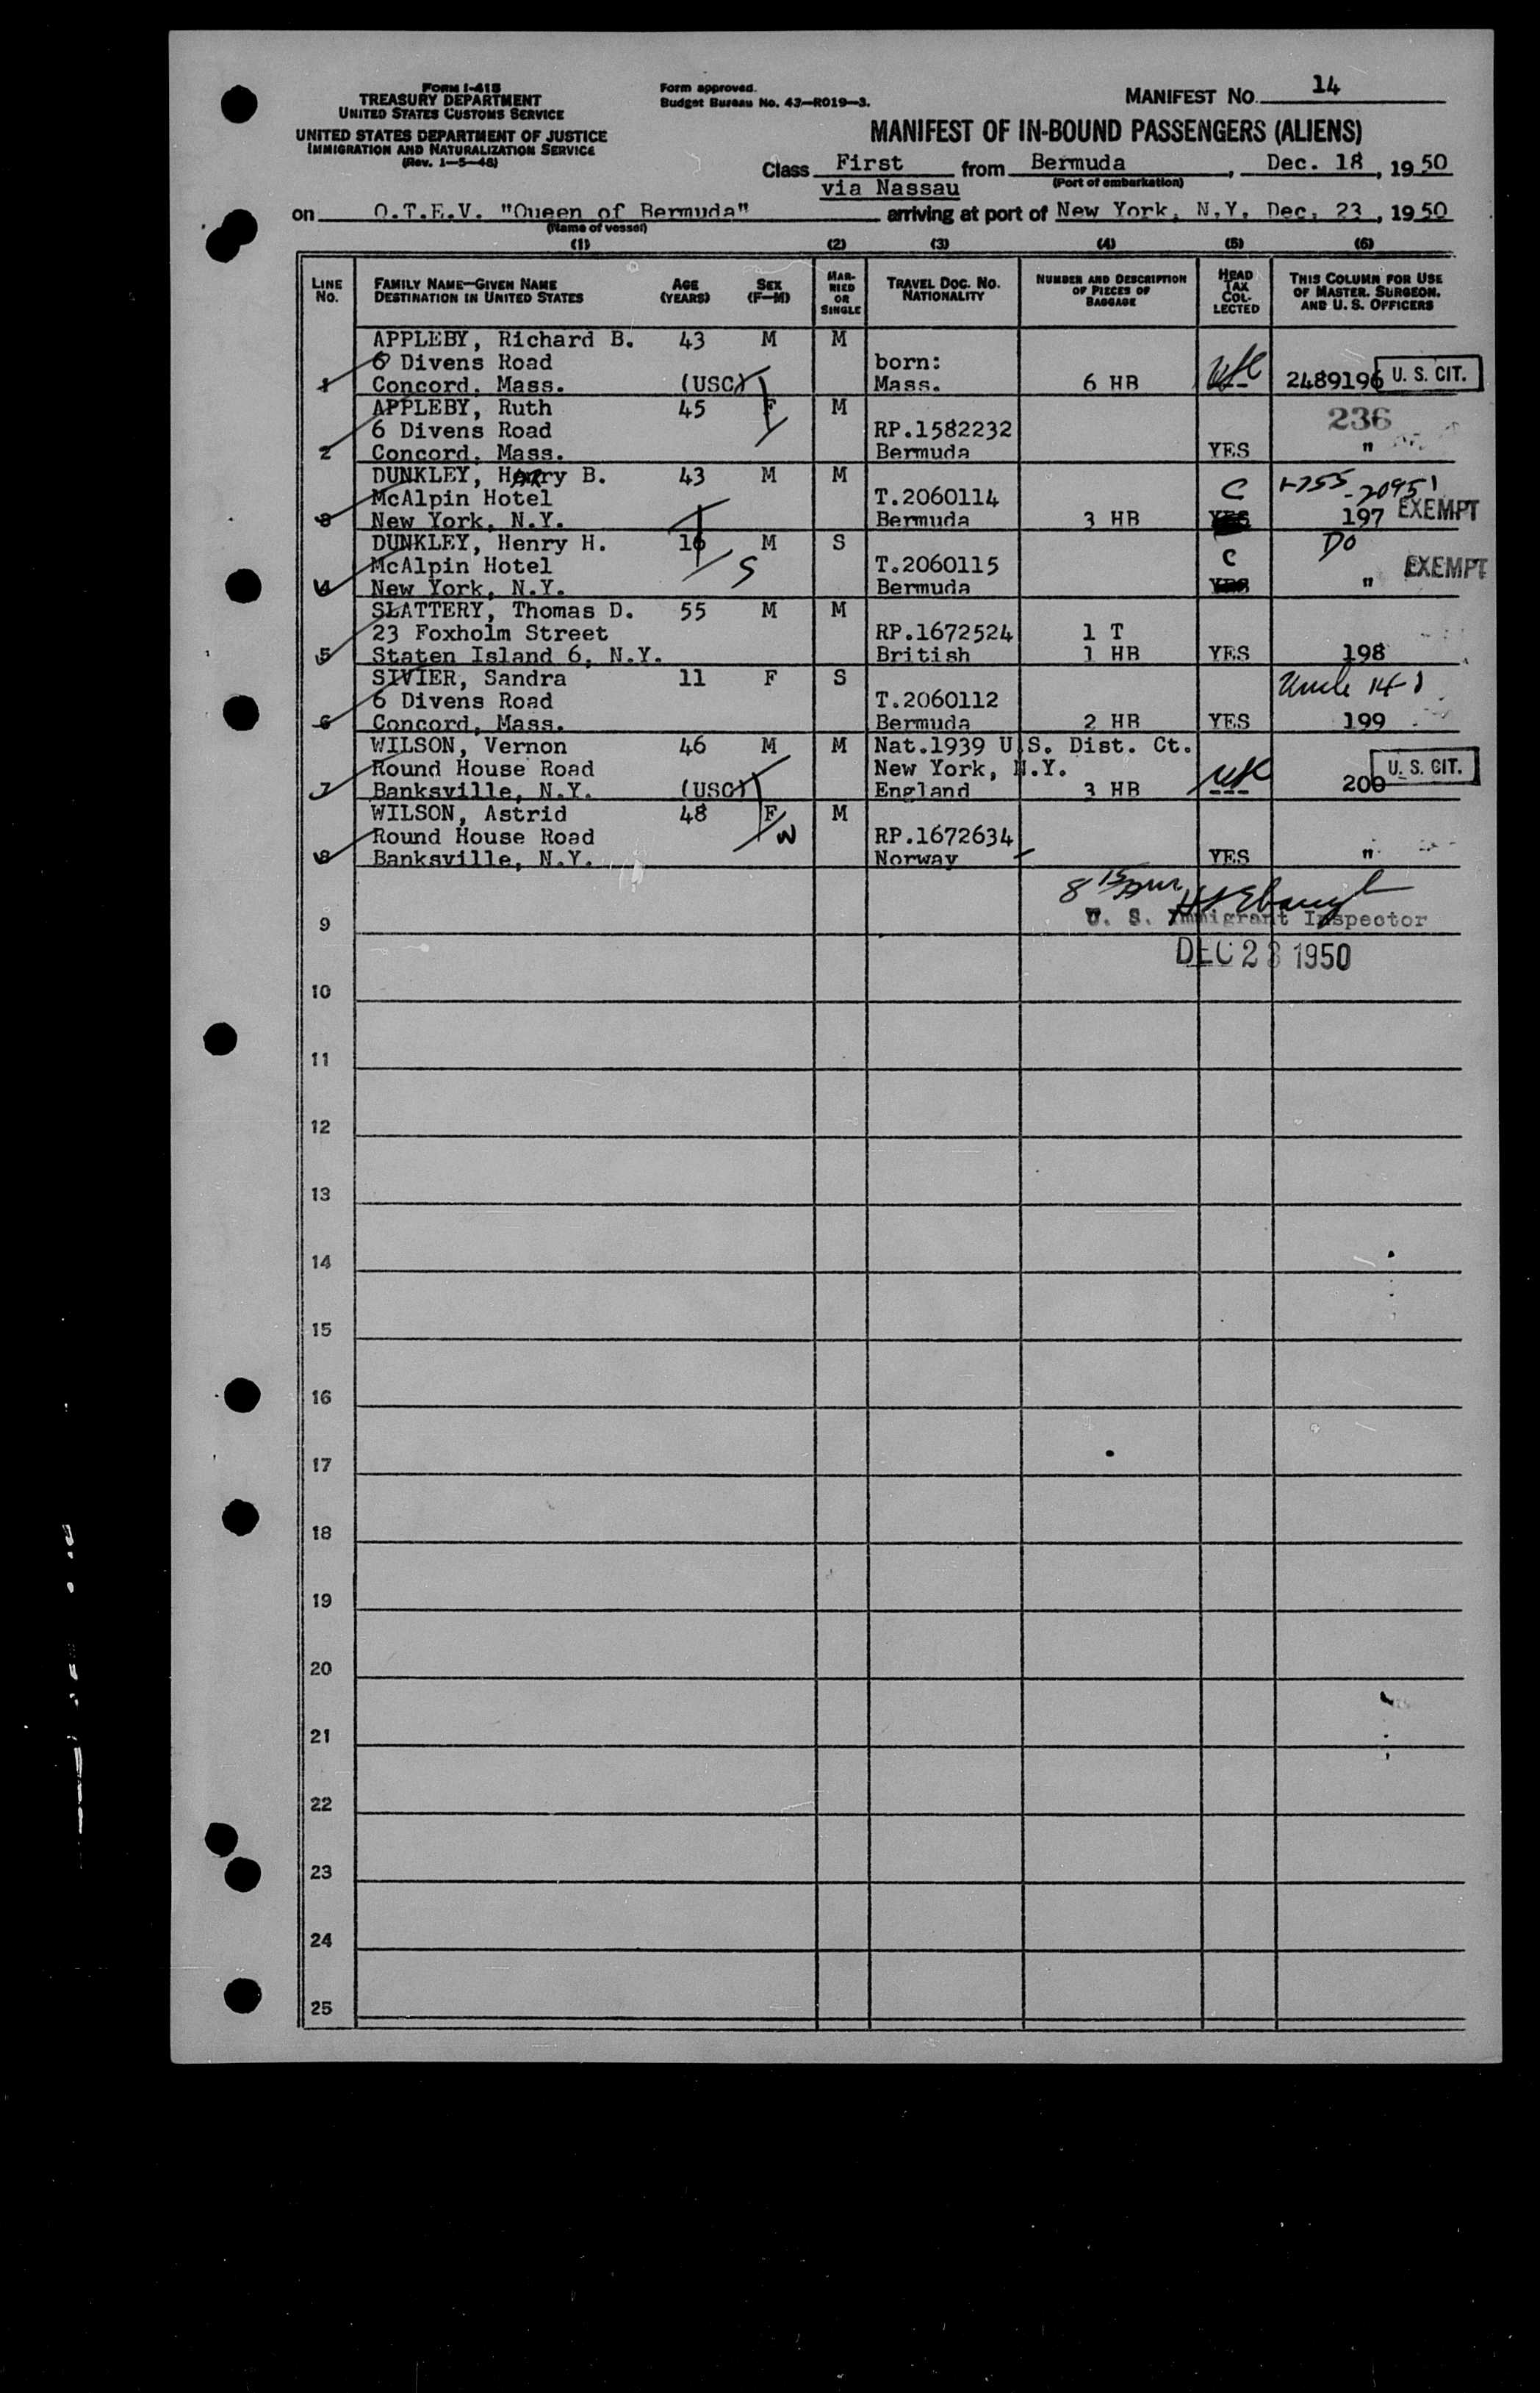 Form I-418
TREASURY DEPARTMENT
UNITED STATES CUSTOMS SERVICE
UNITED STATES DEPARTMENT OF JUSTICE
IMMIGRATION AND NATURALIZATION SERVICE
(Rev. 1-5-48)
Form approved.
Budget Bureau No. 43-R019-3.
MANIFEST NO. 14
MANIFEST OF IN-BOUND PASSENGERS (ALIENS)
Class First from Bermuda, Dec. 18, 1950
via Nassau (Port of embarkation)
on Q.T.E.V. "Queen of Bermuda" arriving at port of New York, N.Y. Dec. 23, 1950
(Name of vessel)
(1) (2) (3) (4) (5) (6)
LINE No. FAMILY NAME-GIVEN NAME DESTINATION IN UNITED STATES AGE (YEARS) SEX (F-M) MARRIED OR SINGLE TRAVEL DOC. NO. NATIONALITY NUMBER AND DESCRIPTION OF PIECES OF BAGGAGE HEAD TAX COLLECTED THIS COLUMN FOR USE OF MASTER, SURGEON, AND U. S. OFFICERS
APPLEBY, Richard B. 43 M M
6 Divens Road born:
1 Concord, Mass. (USC) Mass. 6 HB 2489196 U. S. CIT.
APPLEBY, Ruth 45 F M 236
6 Divens Road RP.1582232
2 Concord, Mass. Bermuda YES "
DUNKLEY, Harry B. 43 M M
McAlpin Hotel T.2060114 C 1-755-20951
3 New York, N.Y. Bermuda 3 HB YES 197 EXEMPT
DUNKLEY, Henry H. 16 M S Do
McAlpin Hotel S T.2060115 C EXEMPT
4 New York, N.Y. Bermuda YES "
SLATTERY, Thomas D. 55 M M
23 Foxholm Street RP.1672524 1 T
5 Staten Island 6, N.Y. British 1 HB YES 198
SIVIER, Sandra 11 F S Uncle 14-1
6 Divens Road T.2060112
6 Concord, Mass. Bermuda 2 HB YES 199
WILSON, Vernon 46 M M Nat.1939 U.S. Dist. Ct.
Round House Road New York, N.Y. U. S. CIT.
7 Banksville, N.Y. (USC) England 3 HB 200
WILSON, Astrid 48 F M
Round House Road W RP.1672634
8 Banksville, N.Y. Norway YES "
8 15
9 U. S. Immigrant Inspector
DEC 23 1950
10
11
12
13
14
15
16
17
18
19
20
21
22
23
24
25